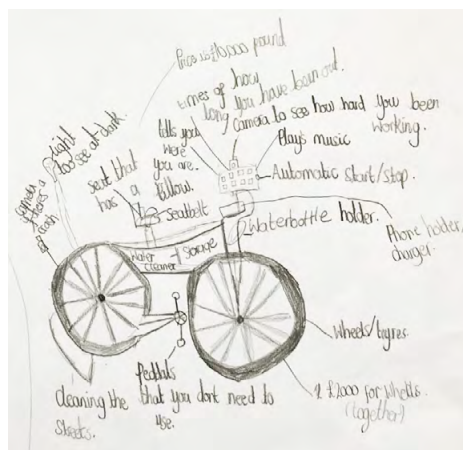 Price is £10,000 pound
times of how
long you have been out.
Camera to see how hard you been
working.
tells you
were
you are.
Plays music
Automatic start/stop.
Light
too see at dark.
seat that
has a
pillow.
seatbelt
camera
if theres a
crash
Waterbottle holder.
Phone holder/
charger.
Water
cleaner
storage
Wheels/tyres.
£2000 for wheels.
(together)
Peddals
that you dont need to
use.
Cleaning the
streets.